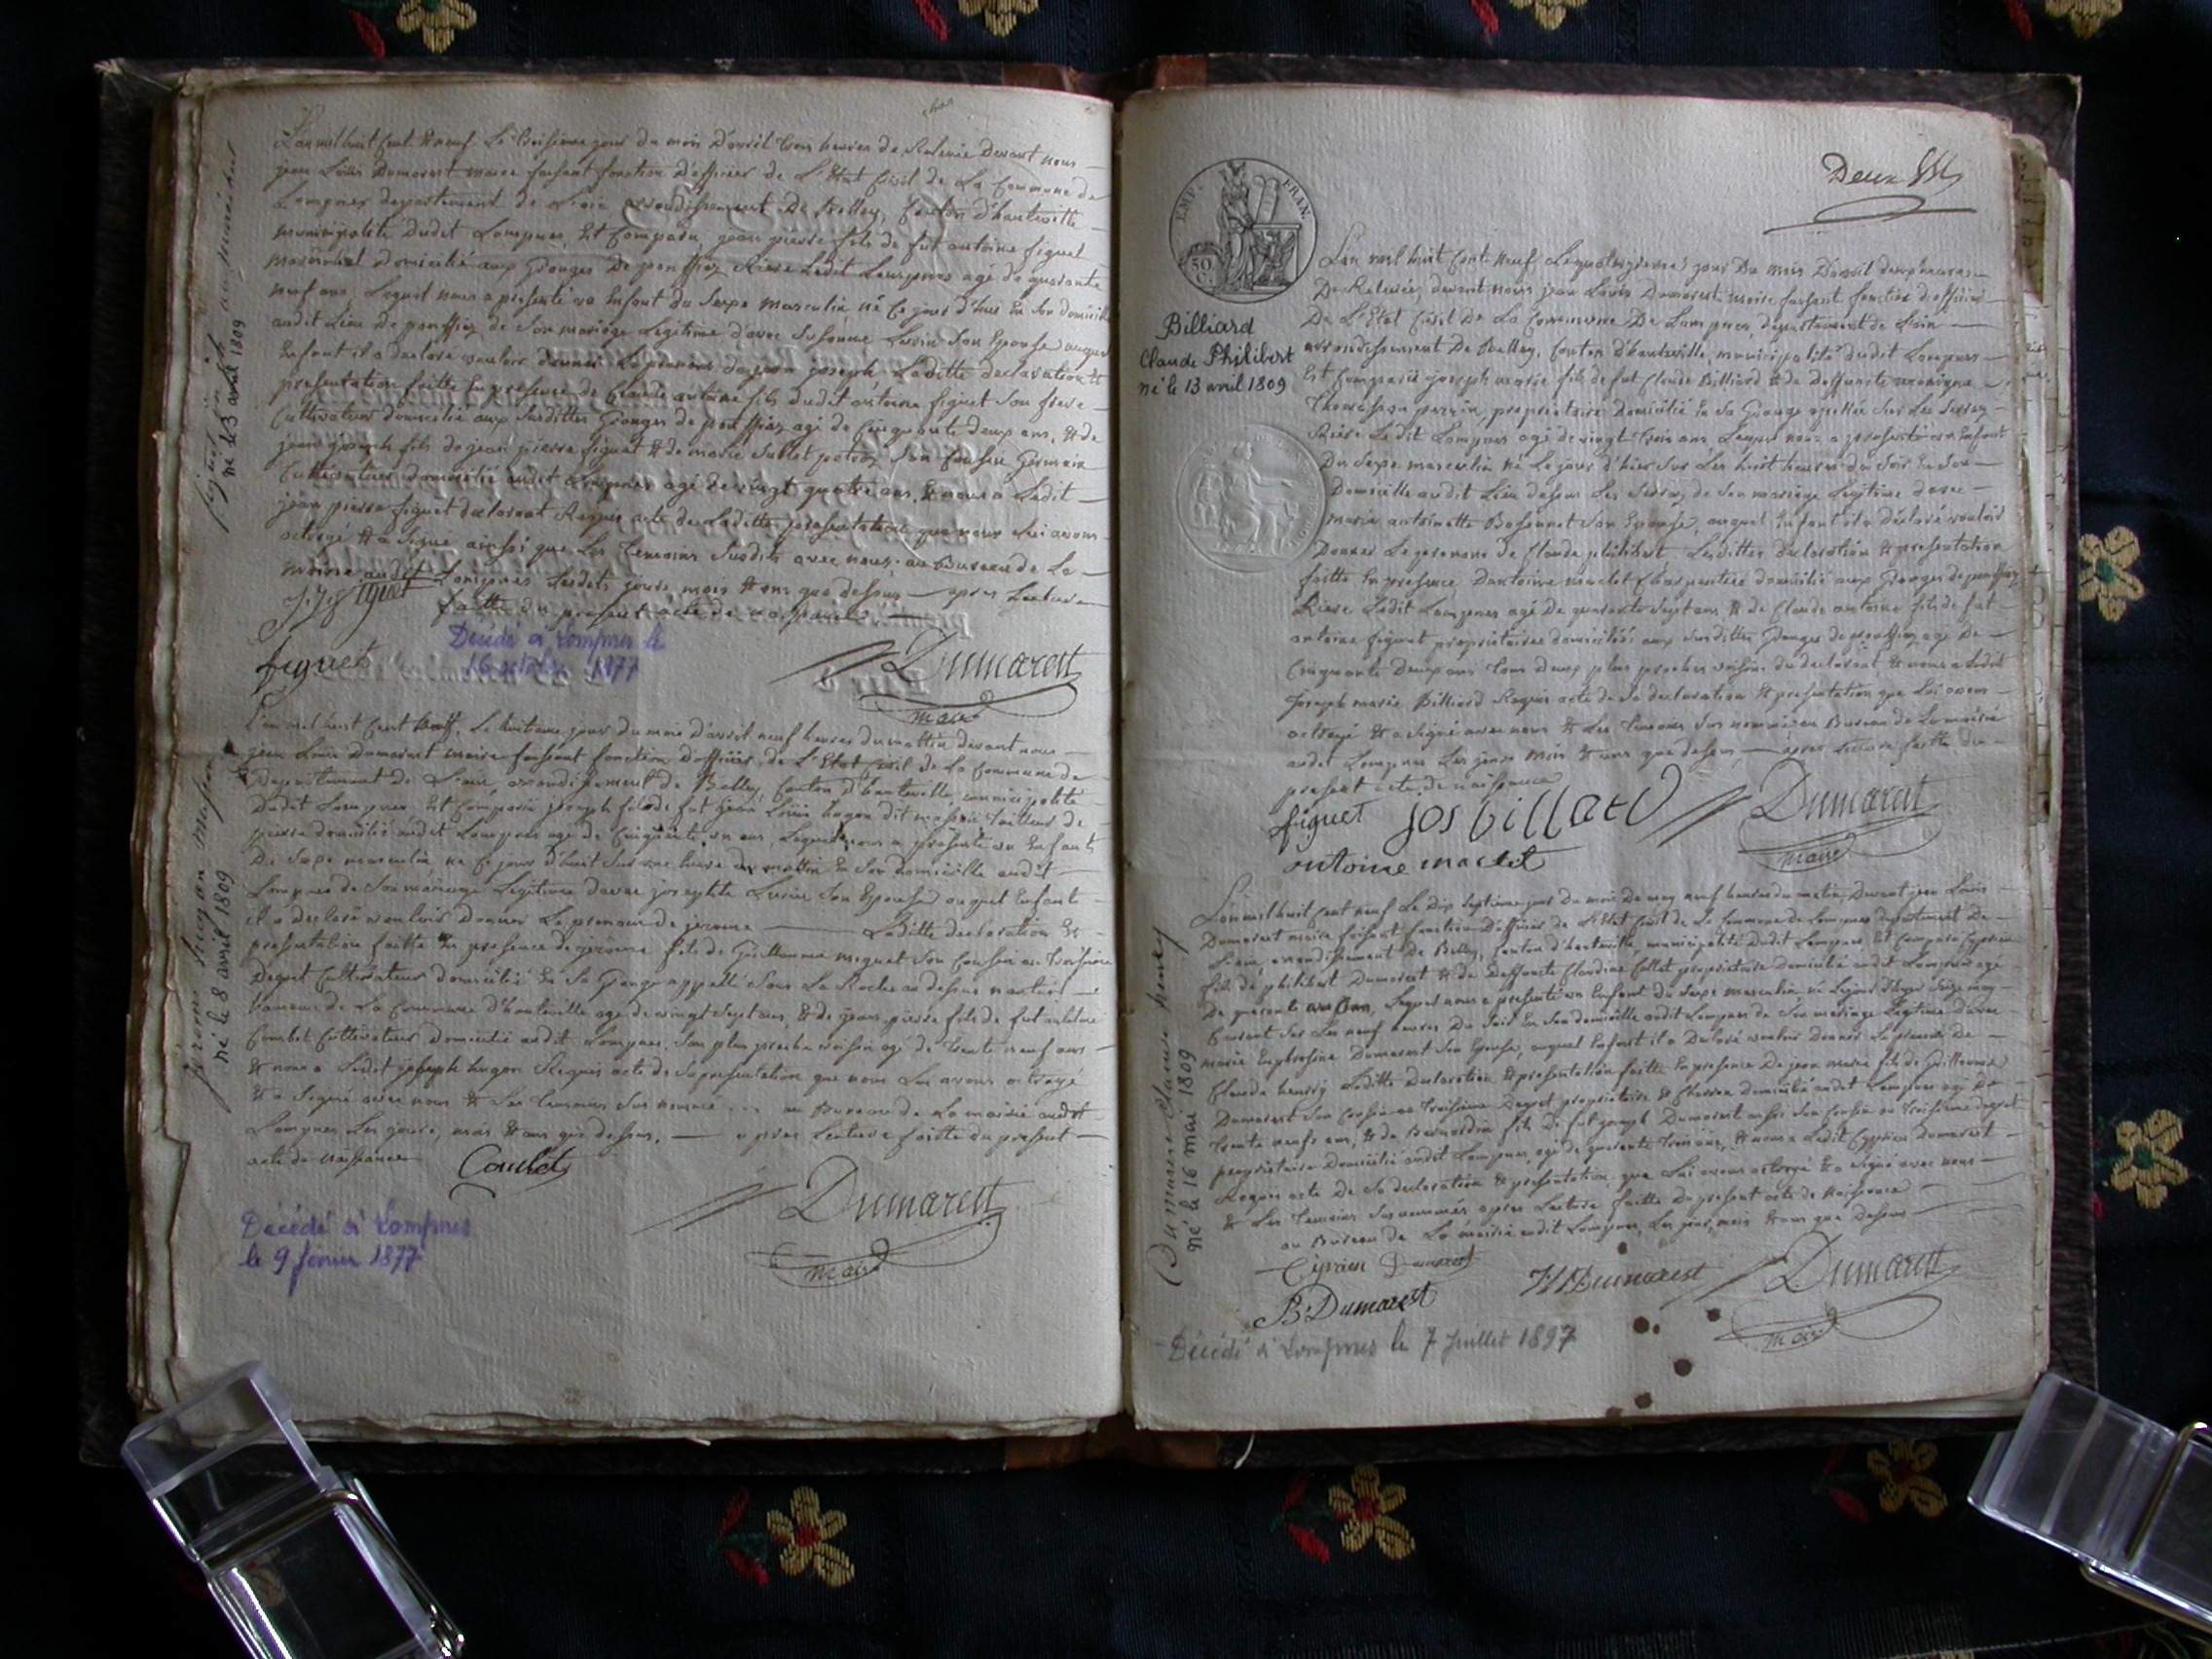 L'an mil huit Cent & neuf Le troisieme jour du mois D'avril trois heures de Relevée Devant nous
jean Louis Dumarest maire faisant fonction d'officier de L'Etat Civil de La Commune de
Lompnes departement de L'ain arrondissement De Belley, Canton d'hauteville
municipalité Dudit Lompnes, Est Comparu, jean pierre fils de fut antoine figuet
domicilié aux Granges De ponthieu Riere Ledit Lompnes agé de quarante
neuf ans, Lequel nous a presenté un Enfant du Sexe masculin, né Ce jourd'hui En Son domicile
audit Lieu de de Son mariage Legitime d'avec Susanne Son Epouse auquel
Enfant il a declaré vouloir donner Le prenom de jean joseph Laditte declaration &
presentation faitte En presence de Claude antoine fils dudit antoine figuet Son frere
Cultivateur domicilié aux Susdittes Granges de agé de Cinquante deux ans, & de
jean joseph fils de jean pierre figuet & de marie Son Cousin Germain
Cultivateur domicilié audit Lompnes agé de vingt quatre ans, & nous a Ledit
jean pierre figuet declarant Requis acte de Laditte presentation que nous Lui avons
octroyé & a Signé ainsi que Les Temoins Susdits avec nous au Bureau de La
mairie audit Lompnes Lesdits jours mois & ans que dessus apres Lecture
faitte du present acte de naissance
figuet
figuet
Dumarest
maire
Décédé à Lompnes le
16 1877
figuet
né le 3 avril 1809
L'an mil huit Cent neuf, Le huitieme jour du mois D'avril neuf heures du mattin devant nous
jean Louis Dumarest maire faisant fonction D'officier de L'Etat Civil de La Commune de
Departement de L'ain, arrondissement de Belley, Canton d'hauteville, municipalité
Dudit Lompnes, Est Comparu joseph fils de fut jean Louis hugon dit masson Tailleur de
pierre domicilié audit Lompnes agé de Cinquante un ans, Lequel nous a presenté un Enfant
De Sexe masculin né Ce jour d'huit Sur une heure du mattin En Son Domicille audit
Lompnes de Son mariage Legitime d'avec josephte Son Epouse auquel Enfant
il a declaré vouloir donner Le prenom de jerome Laditte declaration &
presentation faitte En presence de jerome fils de Guillaume miguet Son Cousin au troisieme
Degret Cultivateur domicilié En Sa Grange appellé Sous La Roche au dessus
hameau de La Commune d'hauteville agé de vingt Sept ans, & de jean pierre fils de fut
Combet Cultivateur domicilié audit Lompnes, Son plus proche voisin agé de trente neuf ans
& nous a Ledit joseph hugon Requis acte de Sa presentation que nous Lui avons octroyé
& a Signé avec nous & Les temoins Sus nommé au Bureau de La mairie audit
Lompnes Les jours, mois & ans que dessus, apres Lecture faitte du present
acte de naissance
Combet
Dumarest
maire
Décédé à Lompnes
le 9 février 1877
né le 8 avril 1809
Deux
EMP. FRAN.
50 C.
Billiard
Claude Philibert
né le 13 avril 1809
L'an mil huit Cent Neuf Le quatorzieme jour Du mois D'avril deux heures
De Relevée, devant nous jean Louis Dumarest maire faisant fonction d'officier
De L'Etat Civil De La Commune De Lompnes departement de L'ain
arrondissement De Belley, Canton d'hauteville, municipalité dudit Lompnes
Est Comparu joseph marie fils de fut Claude Billiard & de Deffunte
perrin, propriétaire Domicilié En Sa Grange apellée Sur Les
Riere Ledit Lompnes agé de vingt trois ans Lequel nous a presenté un Enfant
Du Sexe masculin né Le jour d'hier Sur Les huit heures du Soir En Son
Domicille audit Lieu dessus Les de Son mariage Legitime d'avec
marie antoinette Son Epouse, auquel Enfant il a déclaré vouloir
Donner Le prenom de Claude philibert, Lesdittes declaration & presentation
faitte En presence D'antoine maclet Charpentier domicilié aux Granges de
Riere Ledit Lompnes agé De quarante Sept ans & de Claude antoine fils de fut
antoine figuet propriétaires domiciliés aux Susdittes Granges de agé De
Cinquante Deux ans tous deux plus proches voisins du declarant, & nous a Ledit
joseph marie Billiard Requis acte de Sa declaration & presentation que Lui avons
octroyé & a Signé avec nous & Les temoins Sus nommés au Bureau de La mairie
audit Lompnes Les jours mois & ans que dessus apres Lecture faitte du
present acte de naissance
figuet jos billard Dumarest
antoine maclet maire
Dumarest Claude henry
né le 16 mai 1809
L'an mil huit Cent neuf Le Dix Septieme jour Du mois De may neuf heures du matin Devant jean Louis
Dumarest maire faisant fonction D'officier de L'Etat Civil de La Commune de Lompnes departement De
L'ain, arrondissement De Belley, Canton d'hauteville, municipalité Dudit Lompnes, Est Comparu Cyprien
fils de philibert Dumarest & de Deffunte Claudine Collet propriétaire Domicilié audit Lompnes agé
De quarante un ans, Lequel nous a presenté un Enfant du Sexe masculin né Le jour d'hyer Seize may
Courant Sur Les neuf heures Du Soir En Son domicille audit Lompnes de Son mariage Legitime D'avec
marie Euphrosine Dumarest Son Epouse, auquel Enfant il a Declaré vouloir Donner Le prenom De
Claude henry Laditte Declaration & presentation faitte En presence De jean marie fils de Guillaume
Dumarest Son Cousin au troisieme Degret propriétaire & Domicilié audit Lompnes agé De
trente neuf ans, & de Bernardin fils De fut joseph Dumarest aussi Son Cousin au troisieme degret
propriétaire Domicilié audit Lompnes, agé de quarante trois ans, & nous a Ledit Cyprien Dumarest
Requis acte De Sa declaration & presentation que Lui avons octroyé & a Signé avec nous
& Les temoins Susnommés apres Lecture faitte Du present acte de Naissance
au Bureau de La mairie audit Lompnes, Les jour, mois & ans que Dessus
Cyprien Dumarest
B. Dumarest
Dumarest
Dumarest
maire
Décédé à Lompnes le 7 juillet 1897